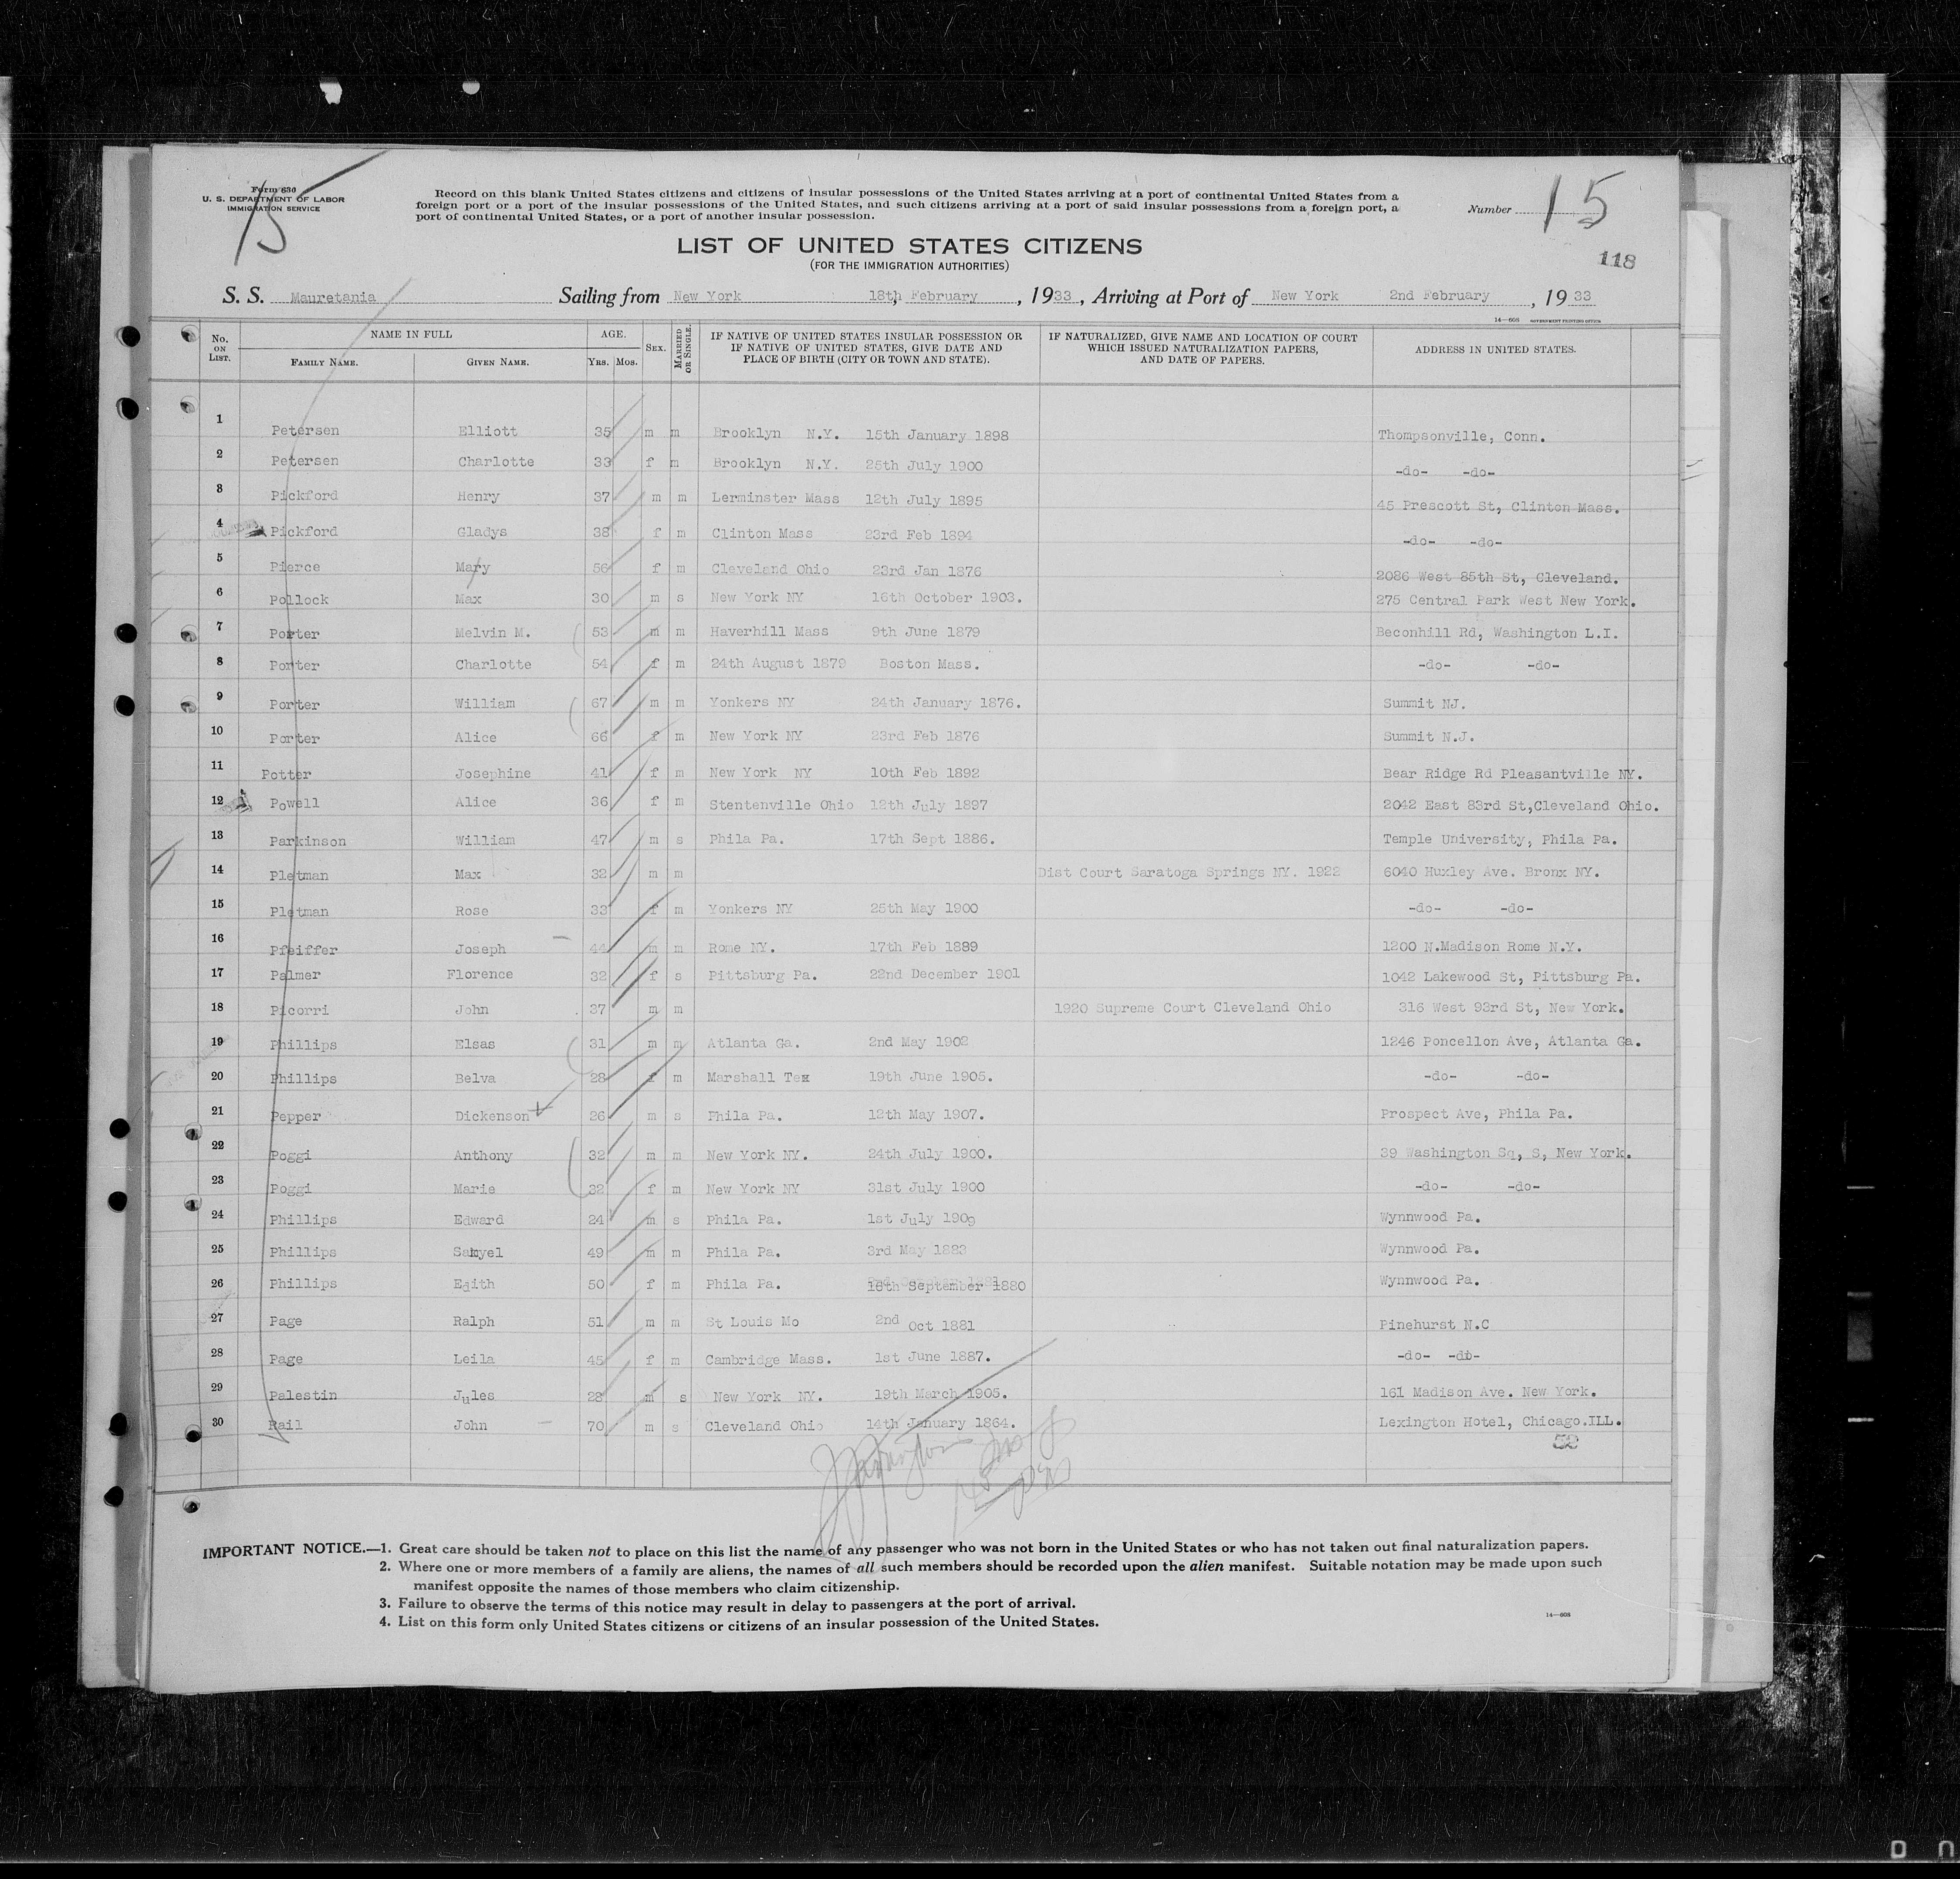 15
Form 630
U. S. DEPARTMENT OF LABOR
IMMIGRATION SERVICE
Record on this blank United States citizens and citizens of insular possessions of the United States arriving at a port of continental United States from a
foreign port or a port of the insular possessions of the United States, and such citizens arriving at a port of said insular possessions from a foreign port, a
port of continental United States, or a port of another insular possession.
Number 15
LIST OF UNITED STATES CITIZENS
(FOR THE IMMIGRATION AUTHORITIES)
118
S. S. Mauretania Sailing from New York 18th February, 1933, Arriving at Port of New York 2nd February, 1933
14—608 GOVERNMENT PRINTING OFFICE
No. ON LIST. NAME IN FULL FAMILY NAME. GIVEN NAME. AGE. YRS. MOS. SEX. MARRIED OR SINGLE. IF NATIVE OF UNITED STATES INSULAR POSSESSION OR IF NATIVE OF UNITED STATES, GIVE DATE AND PLACE OF BIRTH (CITY OR TOWN AND STATE). IF NATURALIZED, GIVE NAME AND LOCATION OF COURT WHICH ISSUED NATURALIZATION PAPERS, AND DATE OF PAPERS. ADDRESS IN UNITED STATES.
1 Petersen Elliott 35 m m Brooklyn N.Y. 15th January 1898 Thompsonville, Conn.
2 Petersen Charlotte 33 f m Brooklyn N.Y. 25th July 1900 -do- -do-
3 Pickford Henry 37 m m Lerminster Mass 12th July 1895 45 Prescott St, Clinton Mass.
4 Pickford Gladys 38 f m Clinton Mass 23rd Feb 1894 -do- -do-
5 Pierce Mary 56 f m Cleveland Ohio 23rd Jan 1876 2086 West 85th St, Cleveland.
6 Pollock Max 30 m s New York NY 16th October 1903. 275 Central Park West New York.
7 Porter Melvin M. 53 m m Haverhill Mass 9th June 1879 Beconhill Rd, Washington L.I.
8 Porter Charlotte 54 f m 24th August 1879 Boston Mass. -do- -do-
9 Porter William 67 m m Yonkers NY 24th January 1876. Summit NJ.
10 Porter Alice 66 f m New York NY 23rd Feb 1876 Summit N.J.
11 Potter Josephine 41 f m New York NY 10th Feb 1892 Bear Ridge Rd Pleasantville NY.
12 Powell Alice 36 f m Stentenville Ohio 12th July 1897 2042 East 83rd St,Cleveland Ohio.
13 Parkinson William 47 m s Phila Pa. 17th Sept 1886. Temple University, Phila Pa.
14 Pletman Max 32 m m Dist Court Saratoga Springs NY. 1922 6040 Huxley Ave. Bronx NY.
15 Pletman Rose 33 f m Yonkers NY 25th May 1900 -do- -do-
16 Pfeiffer Joseph 44 m m Rome NY. 17th Feb 1889 1200 N.Madison Rome N.Y.
17 Palmer Florence 32 f s Pittsburg Pa. 22nd December 1901 1042 Lakewood St, Pittsburg Pa.
18 Picorri John 37 m m 1920 Supreme Court Cleveland Ohio 316 West 93rd St, New York.
19 Phillips Elsas 31 m m Atlanta Ga. 2nd May 1902 1246 Poncellon Ave, Atlanta Ga.
20 Phillips Belva 28 f m Marshall Tex 19th June 1905. -do- -do-
21 Pepper Dickenson 26 m s Phila Pa. 12th May 1907. Prospect Ave, Phila Pa.
22 Poggi Anthony 32 m m New York NY. 24th July 1900. 39 Washington Sq, S, New York.
23 Poggi Marie 32 f m New York NY 31st July 1900 -do- -do-
24 Phillips Edward 24 m s Phila Pa. 1st July 1909 Wynnwood Pa.
25 Phillips Samyel 49 m m Phila Pa. 3rd May 1883 Wynnwood Pa.
26 Phillips Edith 50 f m Phila Pa. 18th September 1880 Wynnwood Pa.
27 Page Ralph 51 m m St Louis Mo 2nd Oct 1881 Pinehurst N.C
28 Page Leila 45 f m Cambridge Mass. 1st June 1887. -do- -do-
29 Palestin Jules 28 m s New York NY. 19th March 1905. 161 Madison Ave. New York.
30 Rail John 70 m s Cleveland Ohio 14th January 1864. Lexington Hotel, Chicago.ILL.
IMPORTANT NOTICE.—1. Great care should be taken not to place on this list the name of any passenger who was not born in the United States or who has not taken out final naturalization papers.
2. Where one or more members of a family are aliens, the names of all such members should be recorded upon the alien manifest. Suitable notation may be made upon such
manifest opposite the names of those members who claim citizenship.
3. Failure to observe the terms of this notice may result in delay to passengers at the port of arrival.
4. List on this form only United States citizens or citizens of an insular possession of the United States.
14—608